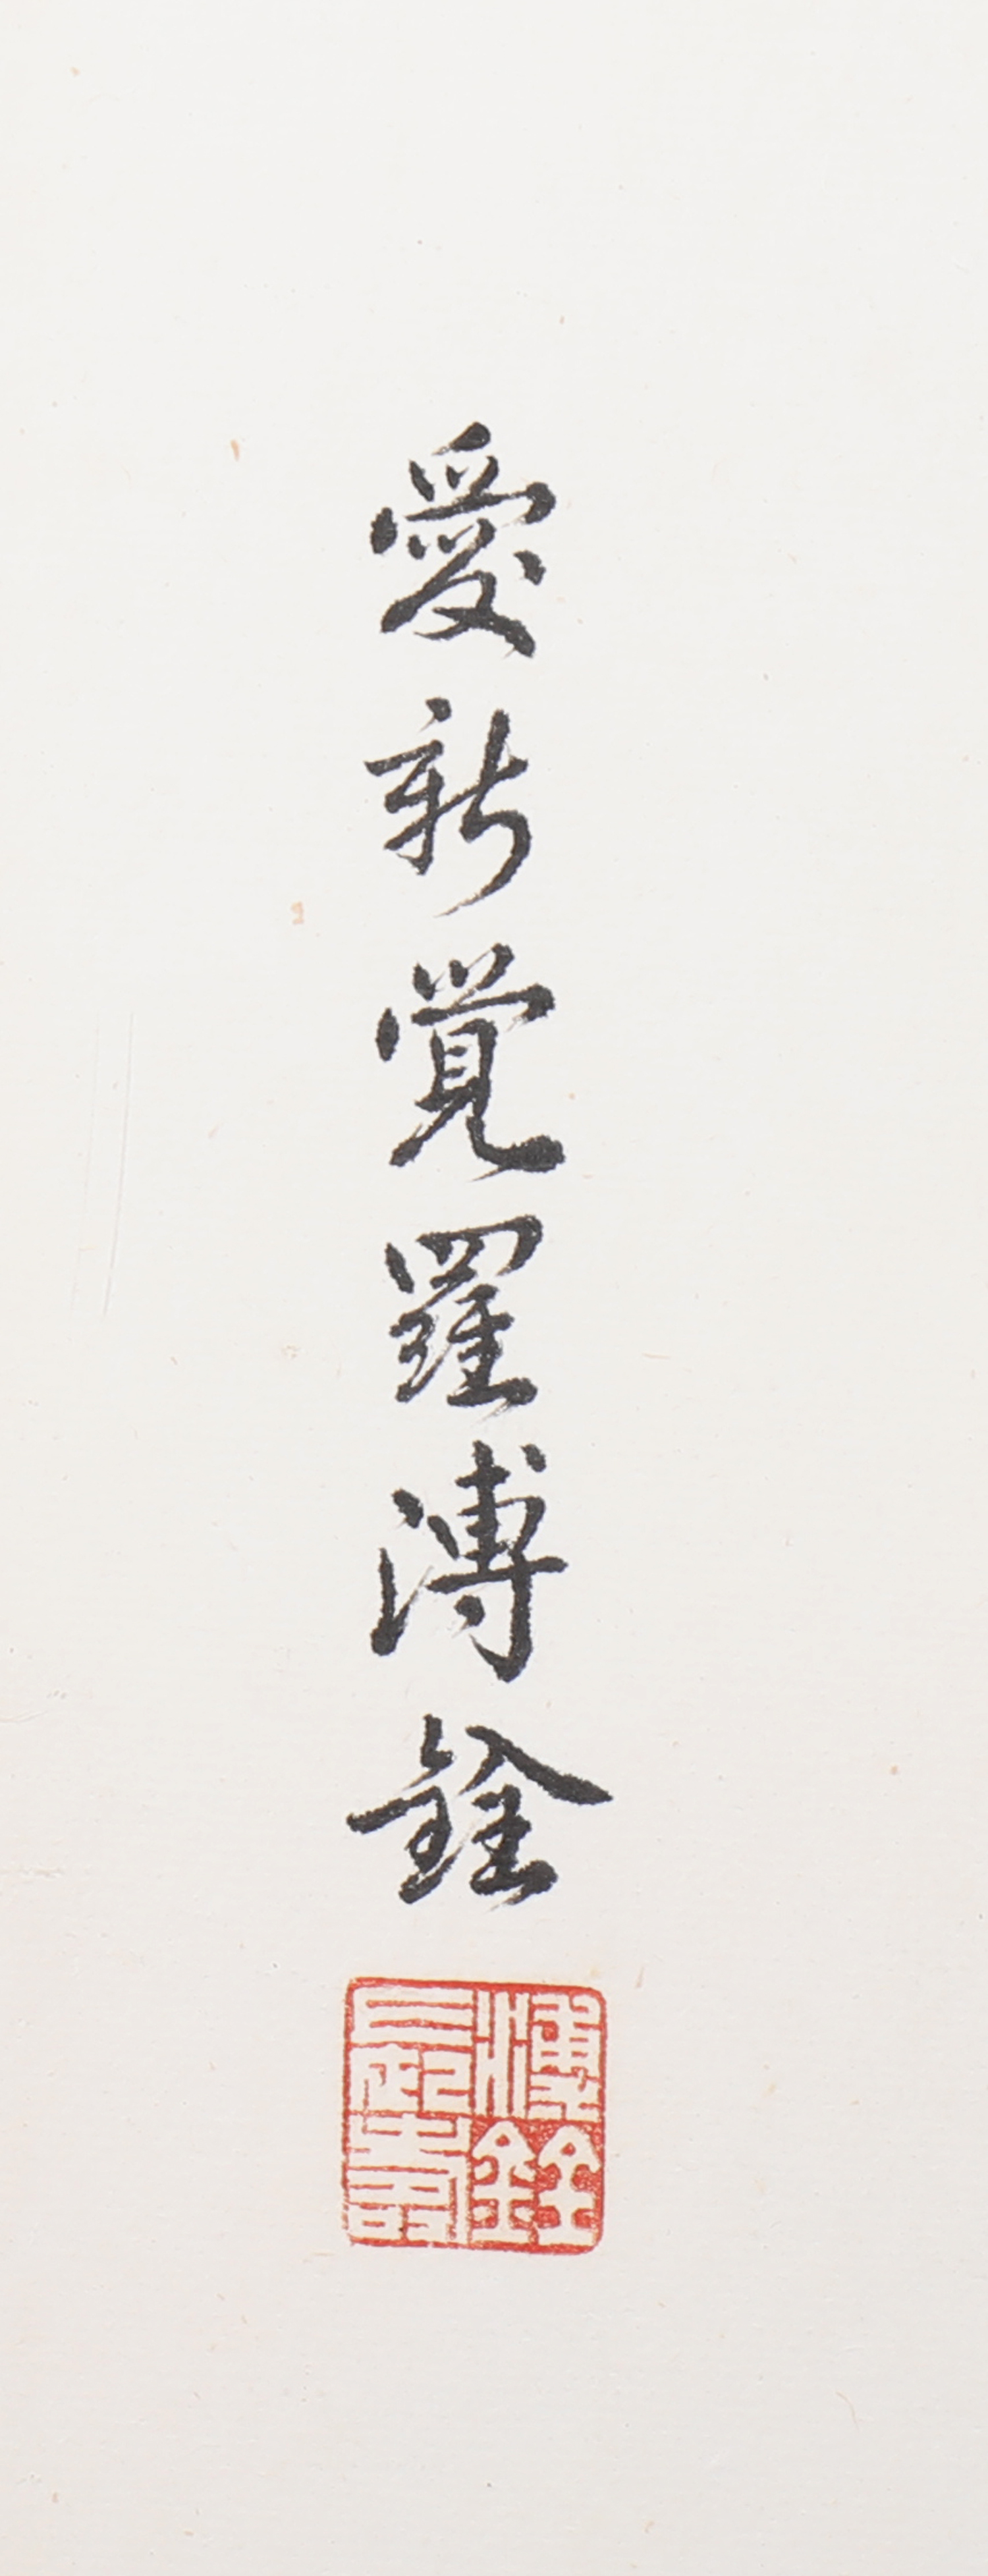 愛新覺羅溥銓
溥銓